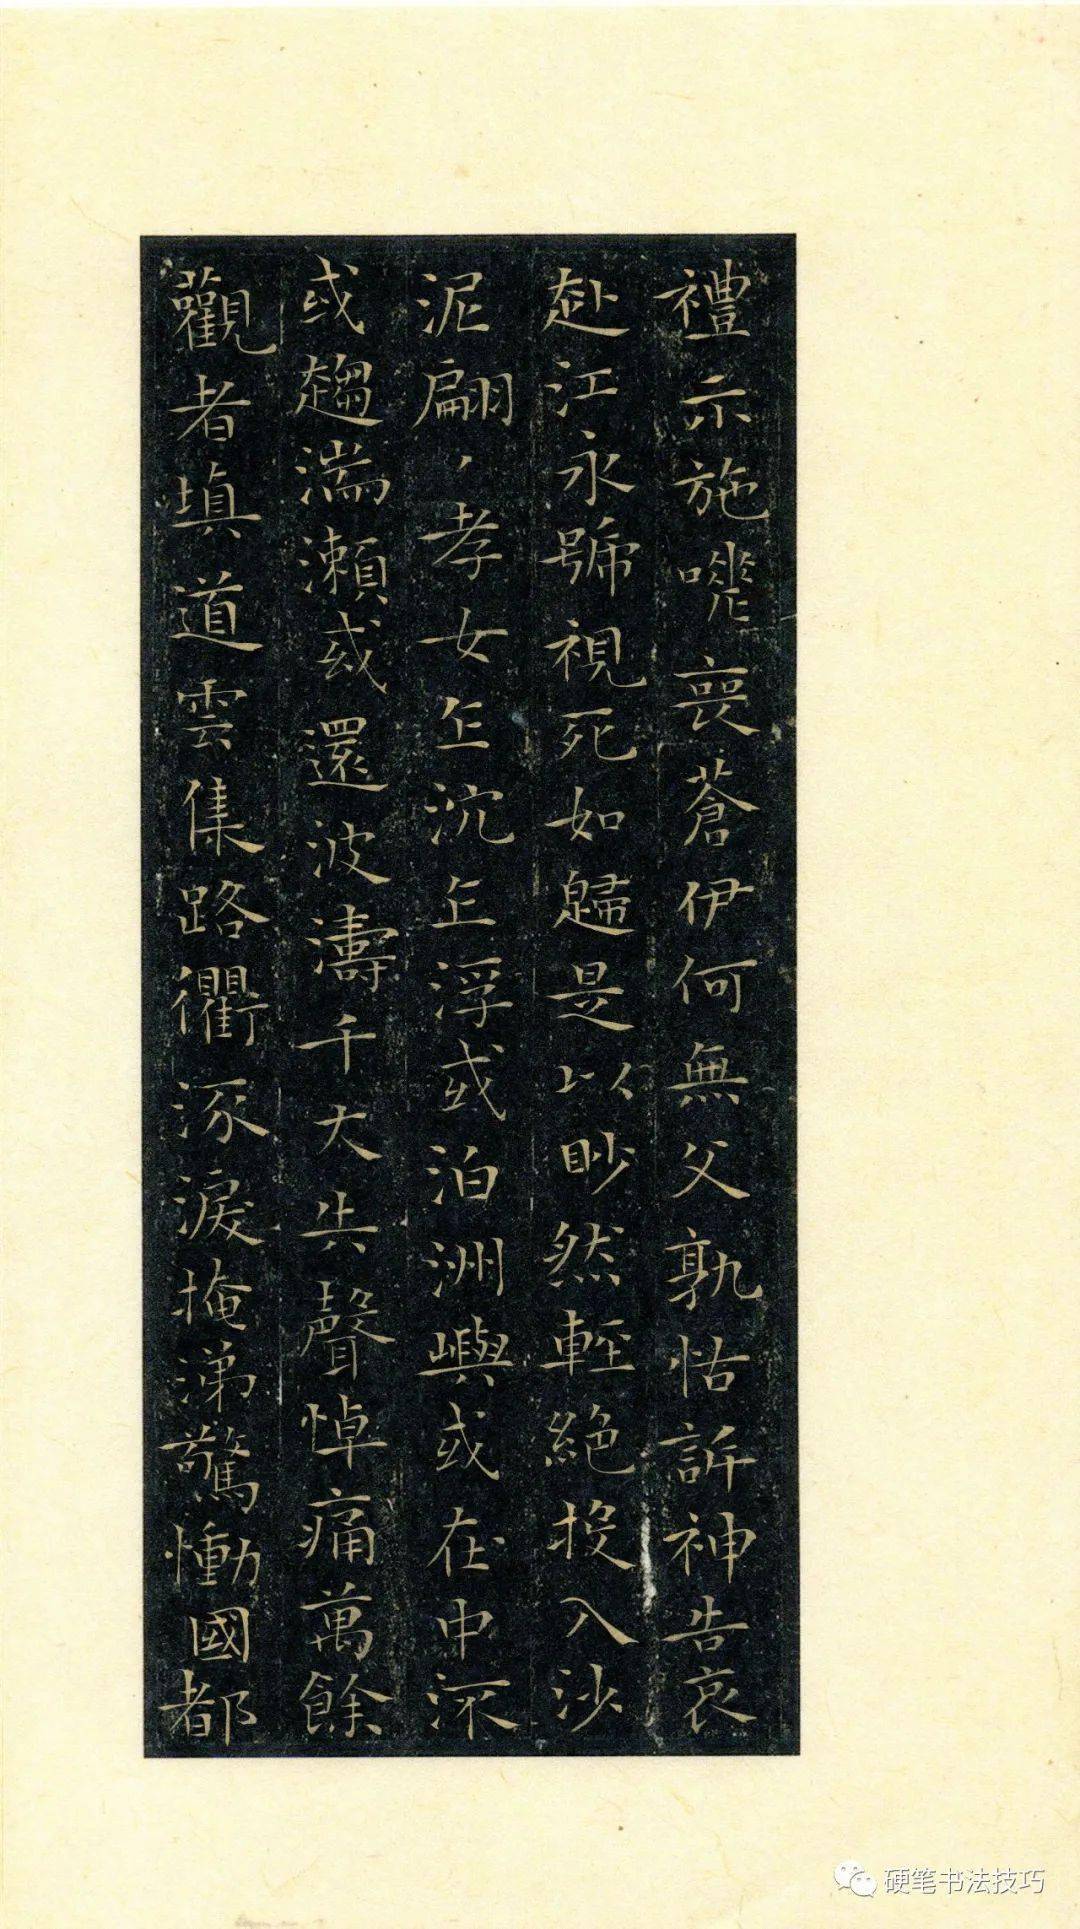 禮示施嗟喪蒼伊何無父孰怙訴神告哀
赴江永號視死如歸是以眇然輕絶投入沙
泥翩丶孝女乍沈乍浮或泊洲嶼或在中流
或趨湍瀨或還波濤千夫失聲悼痛萬餘
觀者填道雲集路衢流淚掩涕驚慟國都
硬笔书法技巧